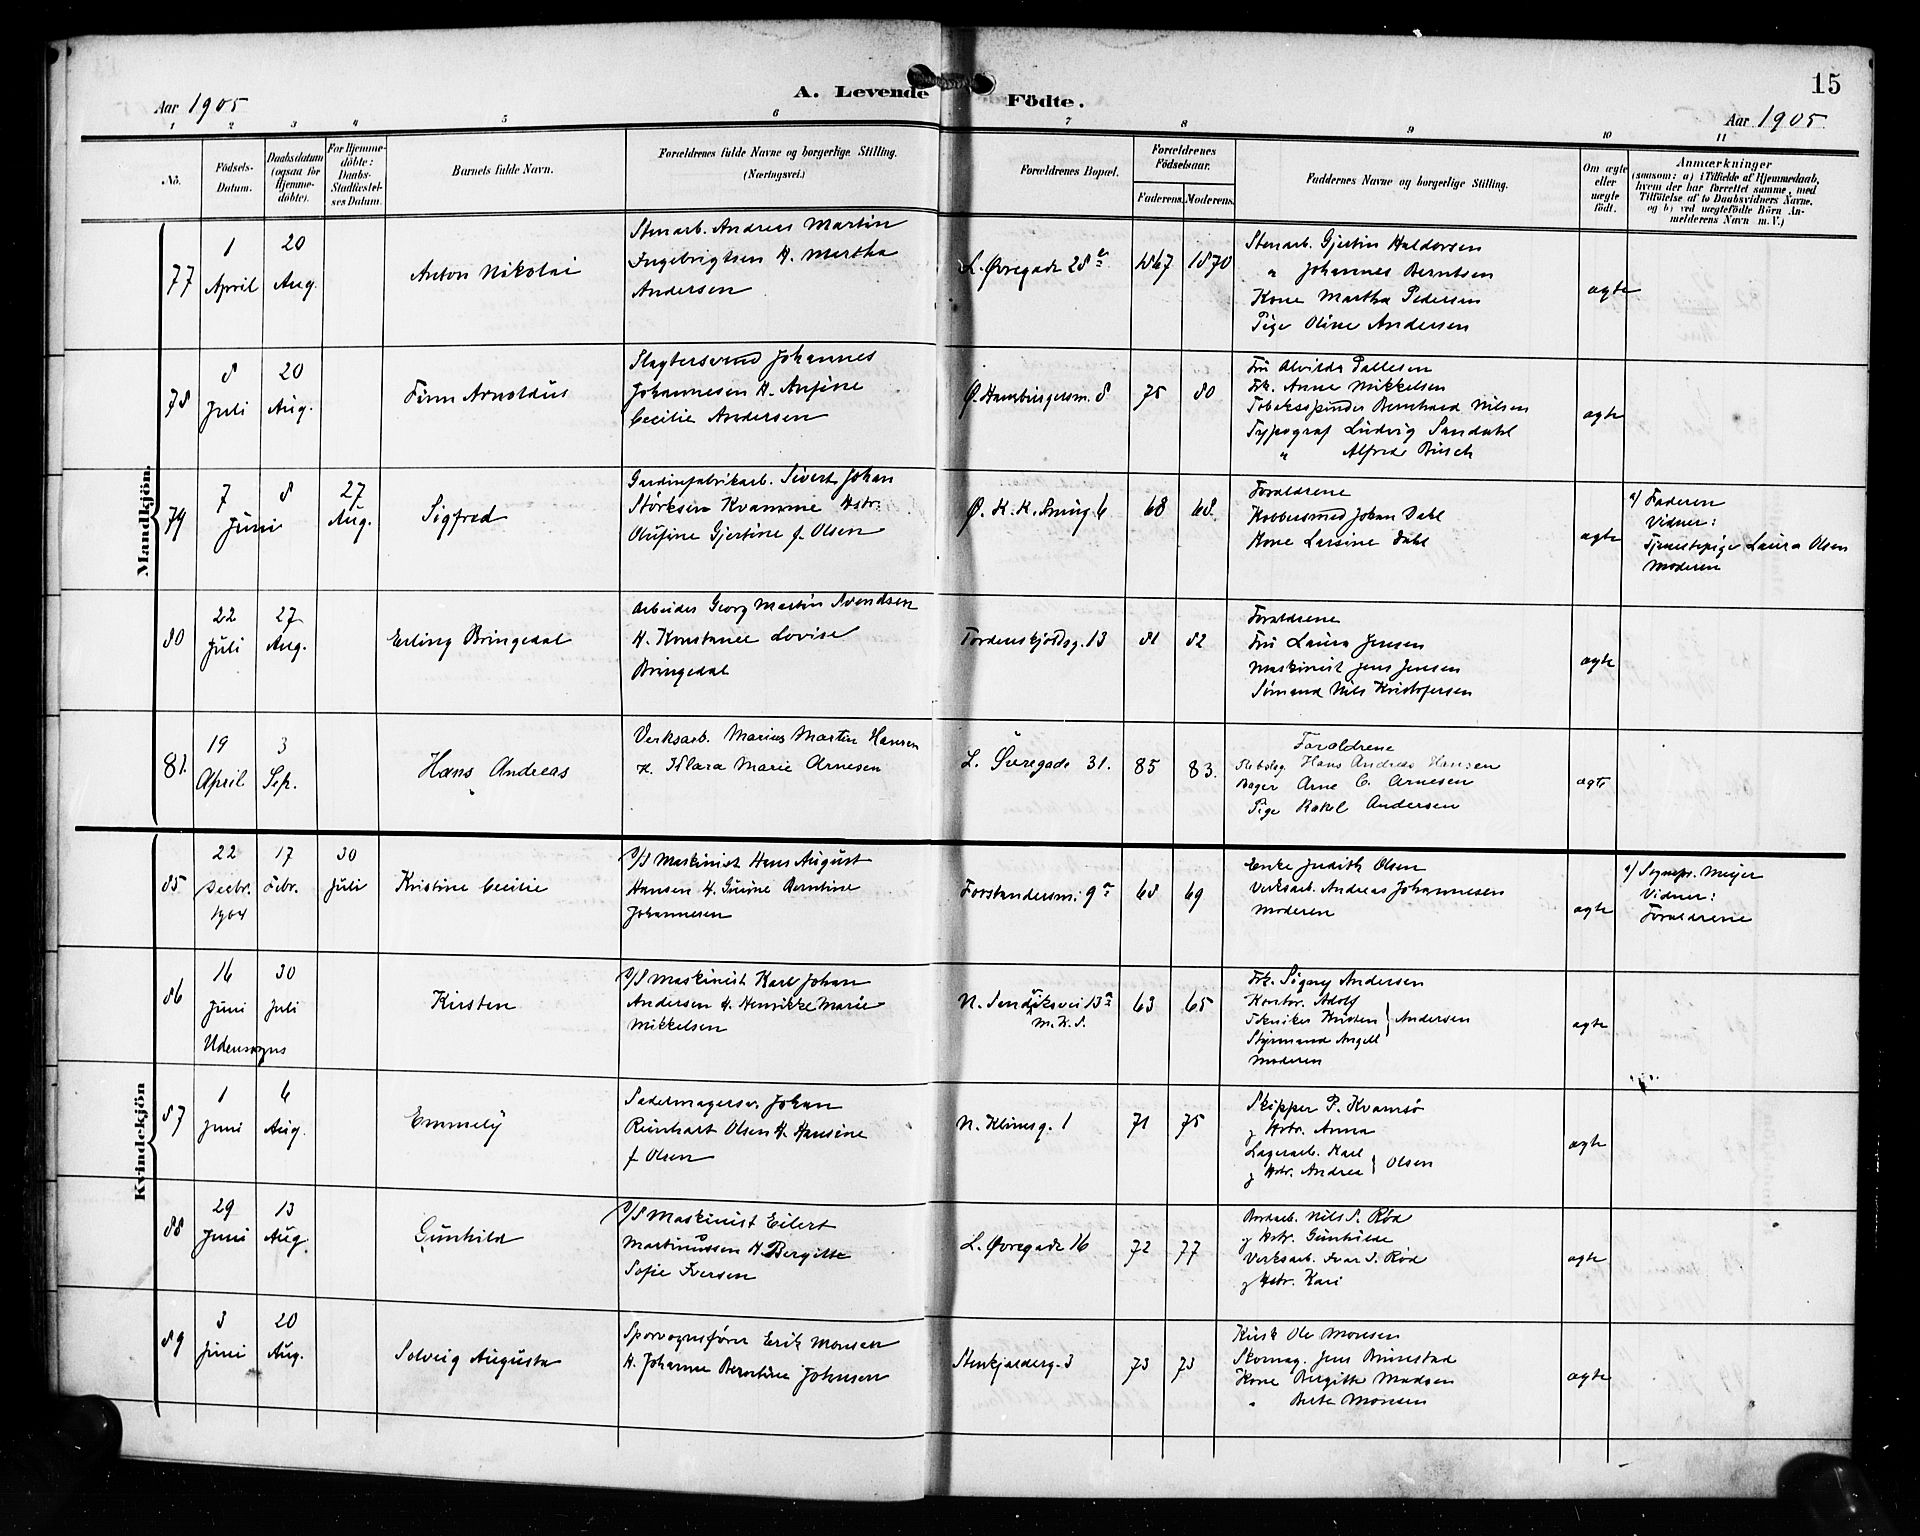 15
Aar 1905
A. Levende Födte.
Aar 1905.
1 2 3 4 5 6 7 8 9 10 11
No.
Födsels-Datum.
Daabsdatum (ogsaa for Hjemme-döbte).
For Hjemme-döbte: Daabs-Stadfæstel-ses Datum.
Barnets fulde Navn.
Forældrenes fulde Navne og borgerlige Stilling.
(Næringsvei.)
Forældrenes Bopæl.
Forældrenes Födselsaar.
Faderens.
Moderens.
Faddernes Navne og borgerlige Stilling.
Om ægte eller uægte födt.
Anmærkninger
(saasom: a) i Tilfælde af Hjemmedaab,
hvem der har forrettet samme, med
Tilföielse af to Daabsvidners Navne.
og b) ved uægtefödte Börn An-
melderens Navn m. V.)
Mandkjön.
77
1 April
20 Aug.
Anton Nikolai
Stenarb. Andreas Martin
Ingebrigtsen H. Martha
Andersen
L. Øvregade 28 a
1867
1870
Stenarb. Gjertin Haldorsen
" Johannes Berntsen
Kone Martha Pedersen
Pige Oline Andersen
ægte
78
8 Juli
20 Aug.
Finn Arnoldus
Slagtersvend Johannes
Johannesen H. Ansine
Cecilie Andersen
Ø. Hamburgersm. 8
75
80
Fru Alvilda Pallesen
Frk. Anne Mikkelsen
Tobaksspinder Bernhard Nilsen
Typograf Ludvig Sandahl
" Alfred Busch
ægte
79
7 Juni
8
27 Aug.
Sigfred
Gardinfabrikarb. Sivert Johan
Størksen Kvamme Hstr.
Olufine Gjertine f. Olsen
Ø. K. K. Smug 6
68
68.
Forældrene
Kobbersmed Johan Dahl
Kone Larsine Dahl
ægte
a) Faderen
Vidner:
Tjenestepige Laura Olsen
Moderen
80
22 Juli
27 Aug.
Erling Bringedal
Arbeider Georg Martin Svendsen
H. Konstance Lovise
Bringedal
Tordenskjoldsg. 13
81
82
Forældrene
Fru Laura Jensen
Maskinist Jens Jensen
Sømand Nils Kristofersen
ægte
81.
19 April
3 Sep.
Hans Andreas
Verksarb. Marius Martin Hansen
H. Klara Marie Arnesen
L. Øvregade 31.
85
83.
Forældrene
Hans Andreas Hansen
Bager Arne C. Arnesen
Pige Rakel Andersen
ægte
Kvindekjön
85
22 Decbr. 1904
17 Febr.
30 Juli
Kristine Cecilie
D/S Maskinist Hans August
Hansen H. Gurine Berntine
Johannesen
Forstandersm. 9 a
68
69
Enke Judith Olsen
Verksarb. Andreas Johannesen
Moderen
ægte
a) Sognepr. Meyer
Vidner:
Forældrene
86
16 Juni
30 Juli
Udensogns
Kirsten
D/S Maskinist Karl Johan
Andersen H. Henrikke Marie
Mikkelsen
N. Sandviksvei 13 a
M. K. S.
63
65
Frk. Signy Andersen
Kontor. Adolf
Tekniker Kristen } Andersen
Styrmand Angell
Moderen
ægte
87
1 Juni
6 Aug.
Emmely
Sadelmagersv. Johan
Reinhart Olsen H. Hansine
f. Olsen
N. Klinesg. 1
71
75
Skipper P. Kvamsø
g Hstr. Anna
Lagerarb. Karl
g Hstr. Andrea } Olsen
ægte
88
29 Juni
13 Aug.
Gunhild
D/S Maskinist Eilert
Martinussen H. Bergitte
Sofie Iversen
L. Øvregade 16
72
77
Bordarb. Nils S. Rød
g Hstr. Gunhilde
Verksarb. Ivar S. Rød
g Hstr. Kari
ægte
89
3 Juni
20 Aug.
Solveig Augusta
Sporvognsfører Erik Monsen
H. Johanne Berntine Johnsen
Stenkjælderg. 3
73
73
Kusk Ole Monsen
Skomag. Jens Brunstad
Kone Bergitte Madsen
" Berta Monsen
ægte